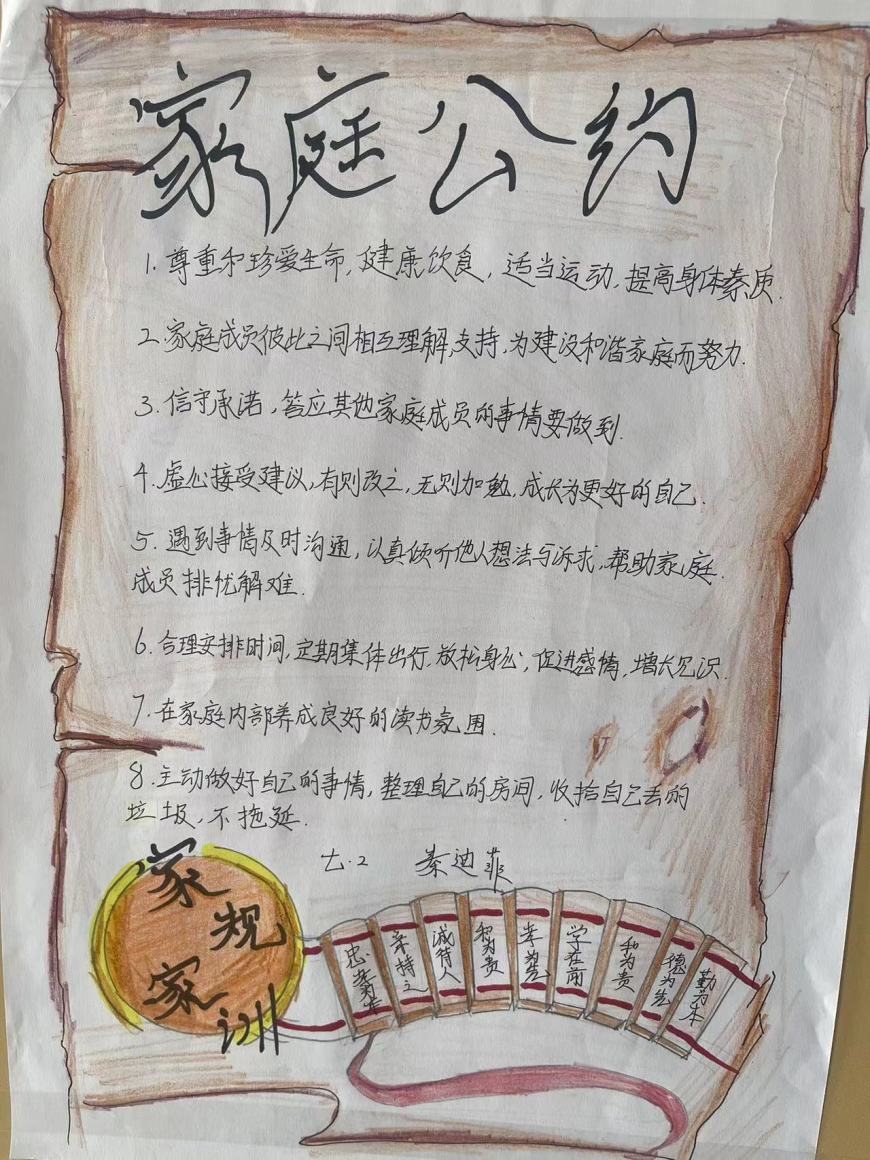 家庭公约
1. 尊重和珍爱生命,健康饮食,适当运动,提高身体素质.
2.家庭成员彼此之间相互理解,支持,为建设和谐家庭而努力.
3.信守承诺,答应其他家庭成员的事情要做到.
4.虚心接受建议,有则改之,无则加勉,成长为更好的自己.
5.遇到事情及时沟通,认真倾听他人想法与诉求,帮助家庭
成员排忧解难.
6.合理安排时间,定期集体出行,放松身心,促进感情,增长见识.
7.在家庭内部养成良好的读书氛围.
8.主动做好自己的事情,整理自己的房间,收拾自己丢的
垃圾,不拖延.
七.2 秦迪菲
家规
家训
诚待人
和为贵
孝为先
学在前
和为贵
德为先
勤为本